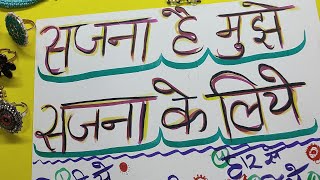 सजना है मुझे
सजना के लिये